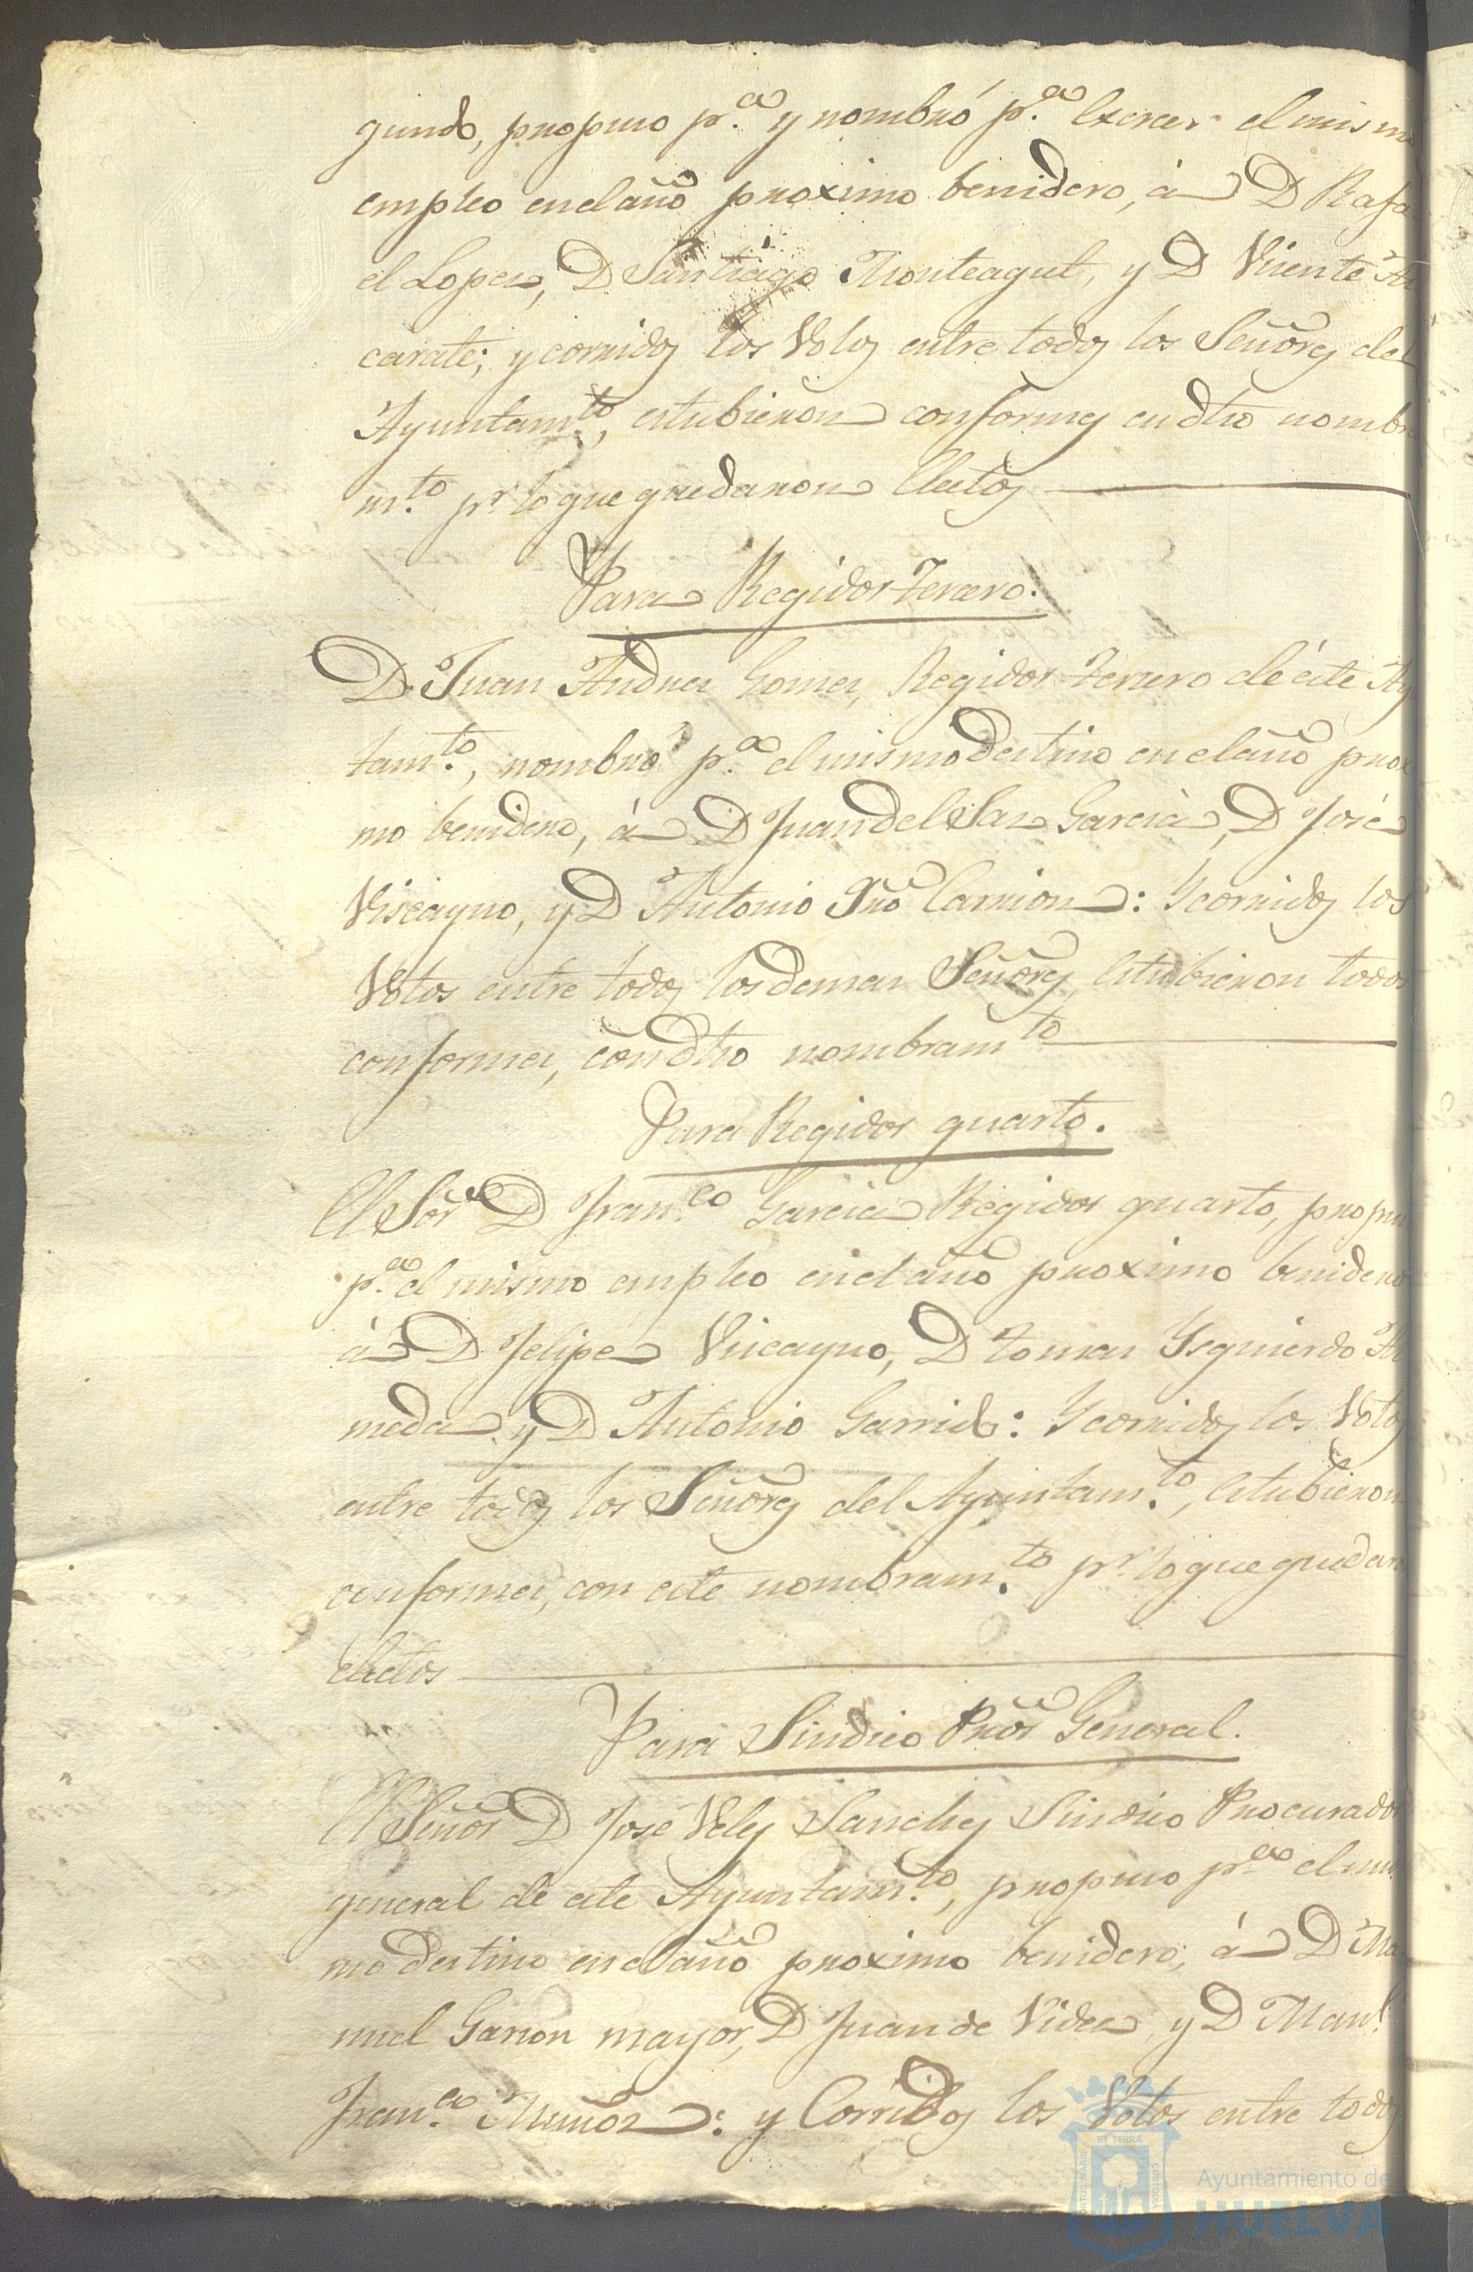 gundo, propuso p.ª y nombró p.ª Exercer el mismo
empleo en el año proximo benidero, á D Rafa
el Lopez, D Santiago Monteagut, y D Vicente
carate; y corridos los Votos entre todos los Señores del
Ayuntam.to, estubieron conformes en dho nombra
m.to pr lo que quedaron Electos
Para Regidor Tercero.
D. Juan Andres Gomez, Regidor Tercero de éste Ay
tam.to, nombró p.ª el mismo destino en el año proxi
mo benidero, á D Juan del Saz Garcia, D José
Viscayno, y D Antonio Jno Carrion: Y corridos los
Votos entre todos los demas Señores, Estubieron todos
conformes, con dho nombram.to
Para Regidor quarto.
El Sor D Fran.co Garcia Regidor quarto, propuso
p.ª el mismo empleo en el año proximo benidero
á D Felipe Viscayno, D tomas Ysquierdo
meda y D Antonio Garrido: Y corridos los Votos
entre todos los Señores del Ayuntam.to, Estubieron
conformes, con este nombram.to pr lo que quedaron
electos
Para Sindico Pror General.
El Señor D José Velez Sanchez Sindico Procurador
general de este Ayuntam.to, propuso p.ª el mis
mo destino en el año proximo benidero, á D Ma
nuel Garzon mayor, D Juan de Vides y D Man.l
Fran.co Muñoz: y Corridos los Votos entre todos
Ayuntamiento de
HUELVA